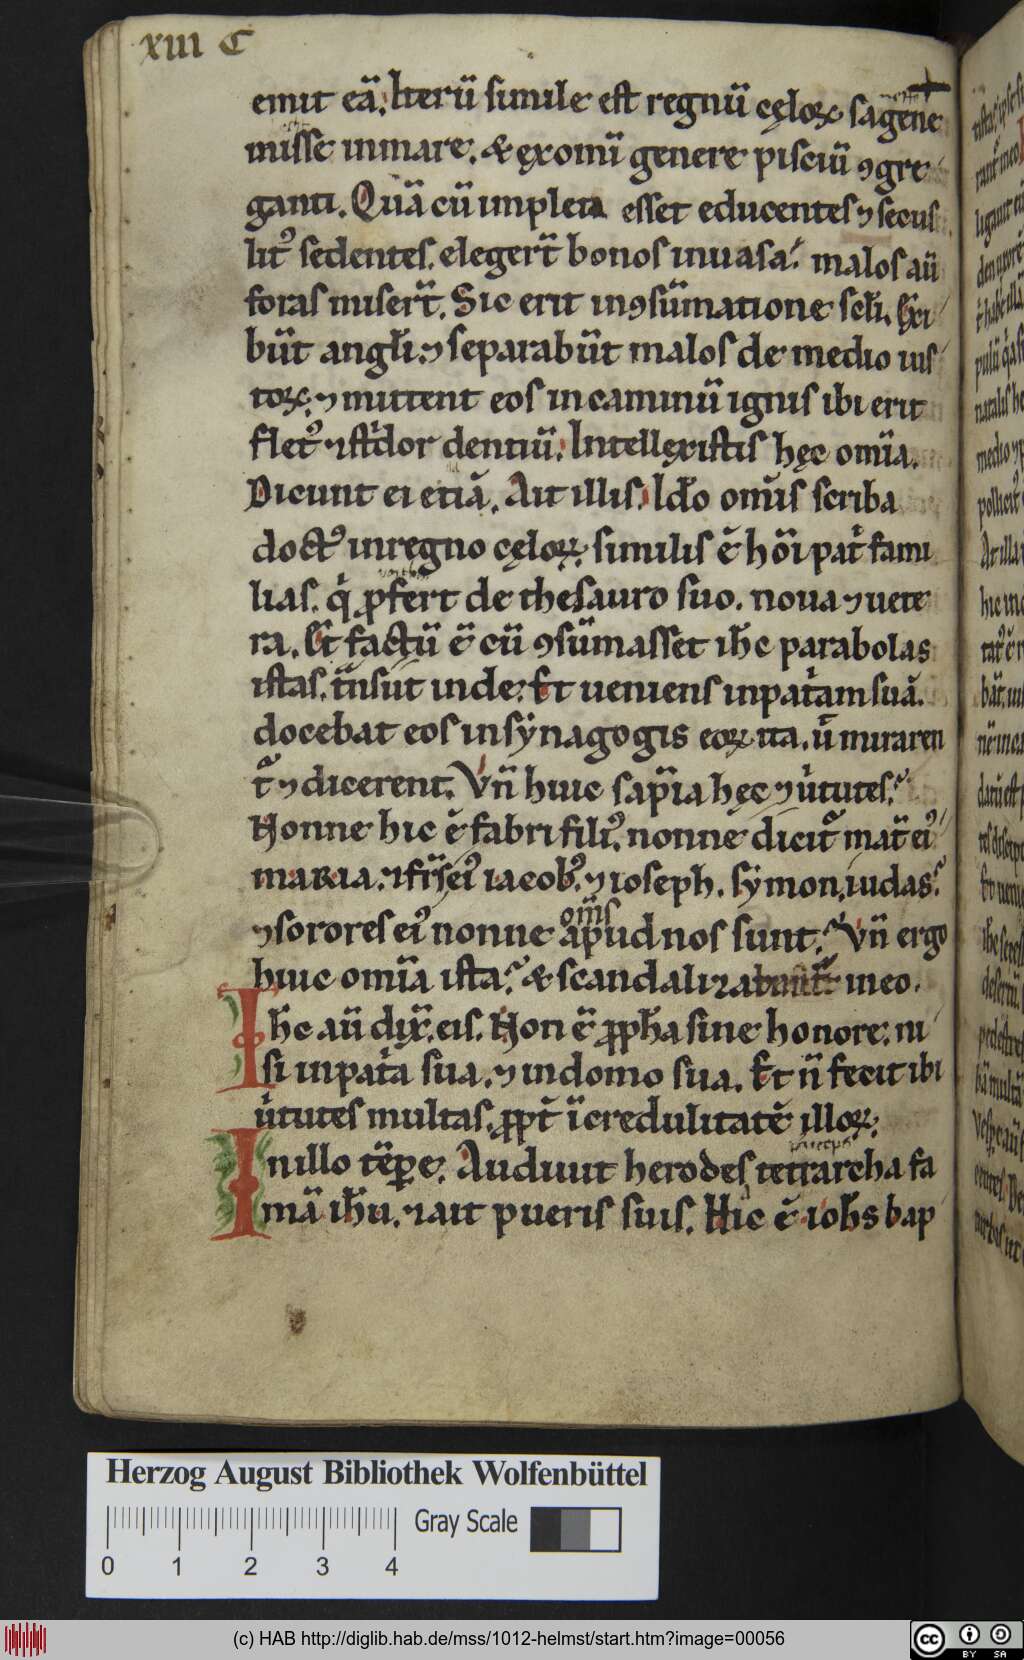 XIII C
emit eā. Iterū simile est regnū cęloꝝ sagene
misse in mare. & ex omī genere pisciū ꝯgre
ganti. Quā cū impleta esset educentes ⁊ secus
litꝰ sedentes. elegerт̄ bonos in uasa. malos aū
foras misert̄. Sic erit in ꝯsūmatione scl̄i. Exi
būt angl̄i. ⁊ separabūt malos de medio ius
toꝝ. ⁊ mittent eos in caminū ignis ibi erit
fletꝰ ⁊ stͥdor dentiū. Intellexistis hęc omīa.
Dicunt ei etiā. Ait illis. Ido omīs scriba
doctꝰ in regno cęloꝝ. similis ē hōi patͥ fami
lias. qͥ ꝓfert de thesauro suo. noua ⁊ uete
ra. Et factū ē cū ꝯsūmasset ih̄c parabolas
istas. tͣnsiit inde. Et ueniens in patͥam suā.
docebat eos in synagogis eoꝝ ita. ūͭ miraren
tͬ ⁊ dicerent. Vn̄ huic sapīa hęc ⁊ uͥtutes.
Nonne hic ē fabri filiꝰ. nonne dicitͬ mat̄ eiꝰ
maria. ⁊ fr̄s eiꝰ iacobꝰ. ⁊ ioseph. symon. iudas.
⁊ sorores eiꝰ nonne apud nos sunt. Vn̄ ergo
omīs
huic omīa ista. & scandalizabantͬ in eo.
Ih̄c aū dix̄. eis. Non ē ꝓph̄a sine honore. ni
si in patͥa sua. ⁊ in domo sua. Et n̄ fecit ibi
uͥtutes multas. ꝓpt̄ īcredulitatē illoꝝ.
In illo tēꝑe. Audiuit herodes tetrarcha fa
mā ih̄u. ⁊ ait pueris suis. Hic ē ioh̄s bap
Herzog August Bibliothek Wolfenbüttel
Gray Scale
0 1 2 3 4
(c) HAB http://diglib.hab.de/mss/1012-helmst/start.htm?image=00056
cc BY SA